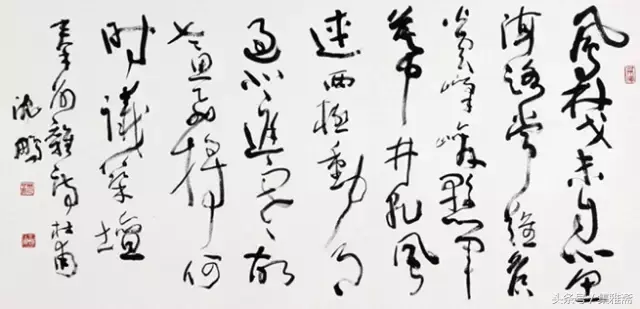 鳳林戈未息魚
海路常難候
火雲峰峻懸軍
幕井乾風
連西極動月
過北庭寒故
老思飛將何
時議築壇
秦州雜詩杜甫
沈鵬
头条号/集雅斋